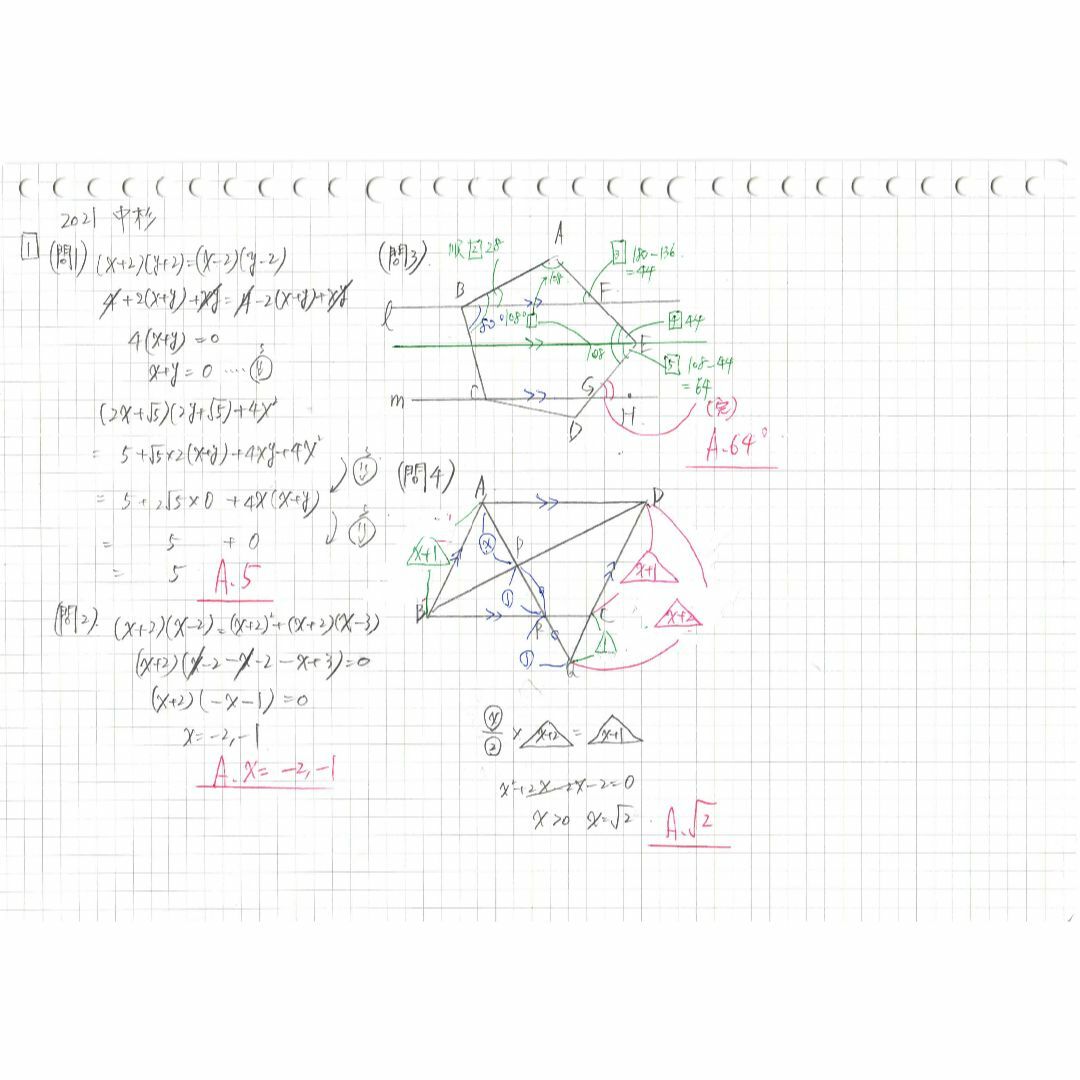 2021 中杉
1 (問1) (x+2)(y+2)=(x-2)(y-2)
4+2(x+y)+xy=4-2(x+y)+xy
4(x+y)=0
x+y=0 ····
(2x+√5)(2y+√5)+4x²
= 5+√5×2(x+y)+4xy+4x²
= 5+2√5×0 +4x(x+y)
= 5 +0
= 5 A.5
(問2) (x+2)(x-2)=(x+2)²+(x+2)(x-3)
(x+2)(x-2-x-2-x+3)=0
(x+2)(-x-1)=0
x=-2,-1
A. x=-2,-1
(問3)
順 2 28
A
3 180-136
=44
108
B
F
l
80°
108°
1
4 44
E
108
5 108-44
=64
G
m
C
H
D
(完)
A.64°
(問4)
A
D
x
x+1
P
x+1
1
B
R
C
x+2
1
1
Q
x/2 × x+2 = x+1
x²+2x-2x-2=0
x>0 x=√2
A.√2